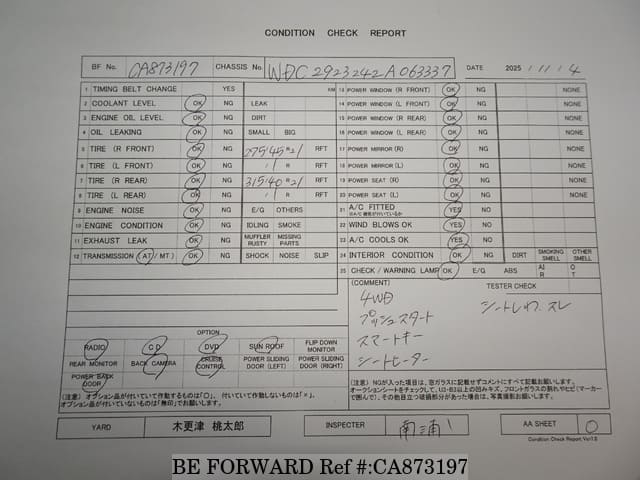 CONDITION CHECK REPORT
BF No. CA873197 CHASSIS No. WDC2923242A063337 DATE 2025 / 11 / 4
1 TIMING BELT CHANGE YES KM
2 COOLANT LEVEL OK NG LEAK
3 ENGINE OIL LEVEL OK NG DIRT
4 OIL LEAKING OK NG SMALL BIG
5 TIRE (R FRONT) OK NG 275/45 R21 RFT
6 TIRE (L FRONT) OK NG / R RFT
7 TIRE (R REAR) OK NG 315/40 R21 RFT
8 TIRE (L REAR) OK NG / R RFT
9 ENGINE NOISE OK NG E/G OTHERS
10 ENGINE CONDITION OK NG IDLING SMOKE
11 EXHAUST LEAK OK NG MUFFLER RUSTY MISSING PARTS
12 TRANSMISSION (AT/MT) OK NG SHOCK NOISE SLIP
13 POWER WINDOW (R FRONT) OK NG NONE
14 POWER WINDOW (L FRONT) OK NG NONE
15 POWER WINDOW (R REAR) OK NG NONE
16 POWER WINDOW (L REAR) OK NG NONE
17 POWER MIRROR (R) OK NG NONE
18 POWER MIRROR (L) OK NG NONE
19 POWER SEAT (R) OK NG NONE
20 POWER SEAT (L) OK NG NONE
21 A/C FITTED YES NO
22 WIND BLOWS OK YES NO
23 A/C COOLS OK YES NO
24 INTERIOR CONDITION OK NG DIRT SMOKING SMELL OTHER SMELL
25 CHECK / WARNING LAMP OK E/G ABS AIR OT
(COMMENT) TESTER CHECK
4WD
プッシュスタート
スマートキー
シートヒーター
シートしわ、スレ
OPTION
RADIO CD DVD SUN ROOF FLIP DOWN MONITOR
REAR MONITOR BACK CAMERA CRUISE CONTROL POWER SLIDING DOOR (LEFT) POWER SLIDING DOOR (RIGHT)
POWER BACK DOOR
(注意) オプション品が付いていて作動するものは「○」、付いていて作動しないものは「×」、
オプション品が付いていないものは「無印」でお願い致します。
(注意) NGが入った項目は、窓ガラスに記載せずコメントにすべて記載お願いします。
YARD 木更津 桃太郎 INSPECTER 南浦 AA SHEET 0
Condition Check Report Ver1.6
BE FORWARD Ref #:CA873197